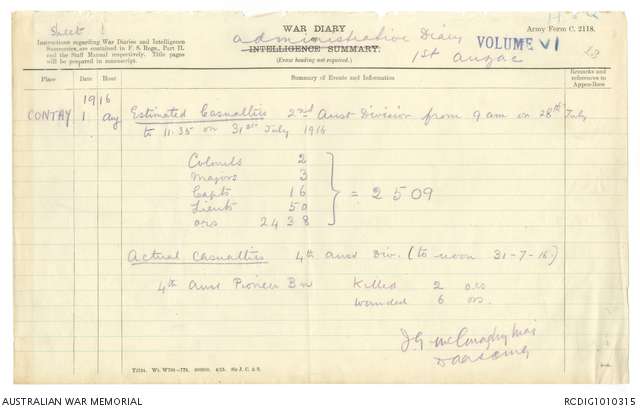 Sheet 1
Instructions regarding War Diaries and Intelligence
Summaries are contained in F. S. Regs., Part II.
and the Staff Manual respectively. Title pages
will be prepared in manuscript.
WAR DIARY
administrative Diary
INTELLIGENCE SUMMARY.
(Erase heading not required.)
1st Anzac
VOLUME VI
Army Form C. 2118.
Place
Date
Hour
Summary of Events and Information
Remarks and
references to
Appendices
1916
CONTAY 1 Aug
Estimated Casualties 2nd Aust Division from 9 am on 28th July
to 11.35 on 31st July 1916
Colonels 2
Majors 3
Capts 16
Lieuts 50
ors 2438
= 2509
Actual Casualties 4th Aust Div. (to noon 31-7-16)
4th Aust Pioneer Bn Killed 2 ors
wounded 6 ors.
J.G. McConaghy Maj
AUSTRALIAN WAR MEMORIAL
RCDIG1010315